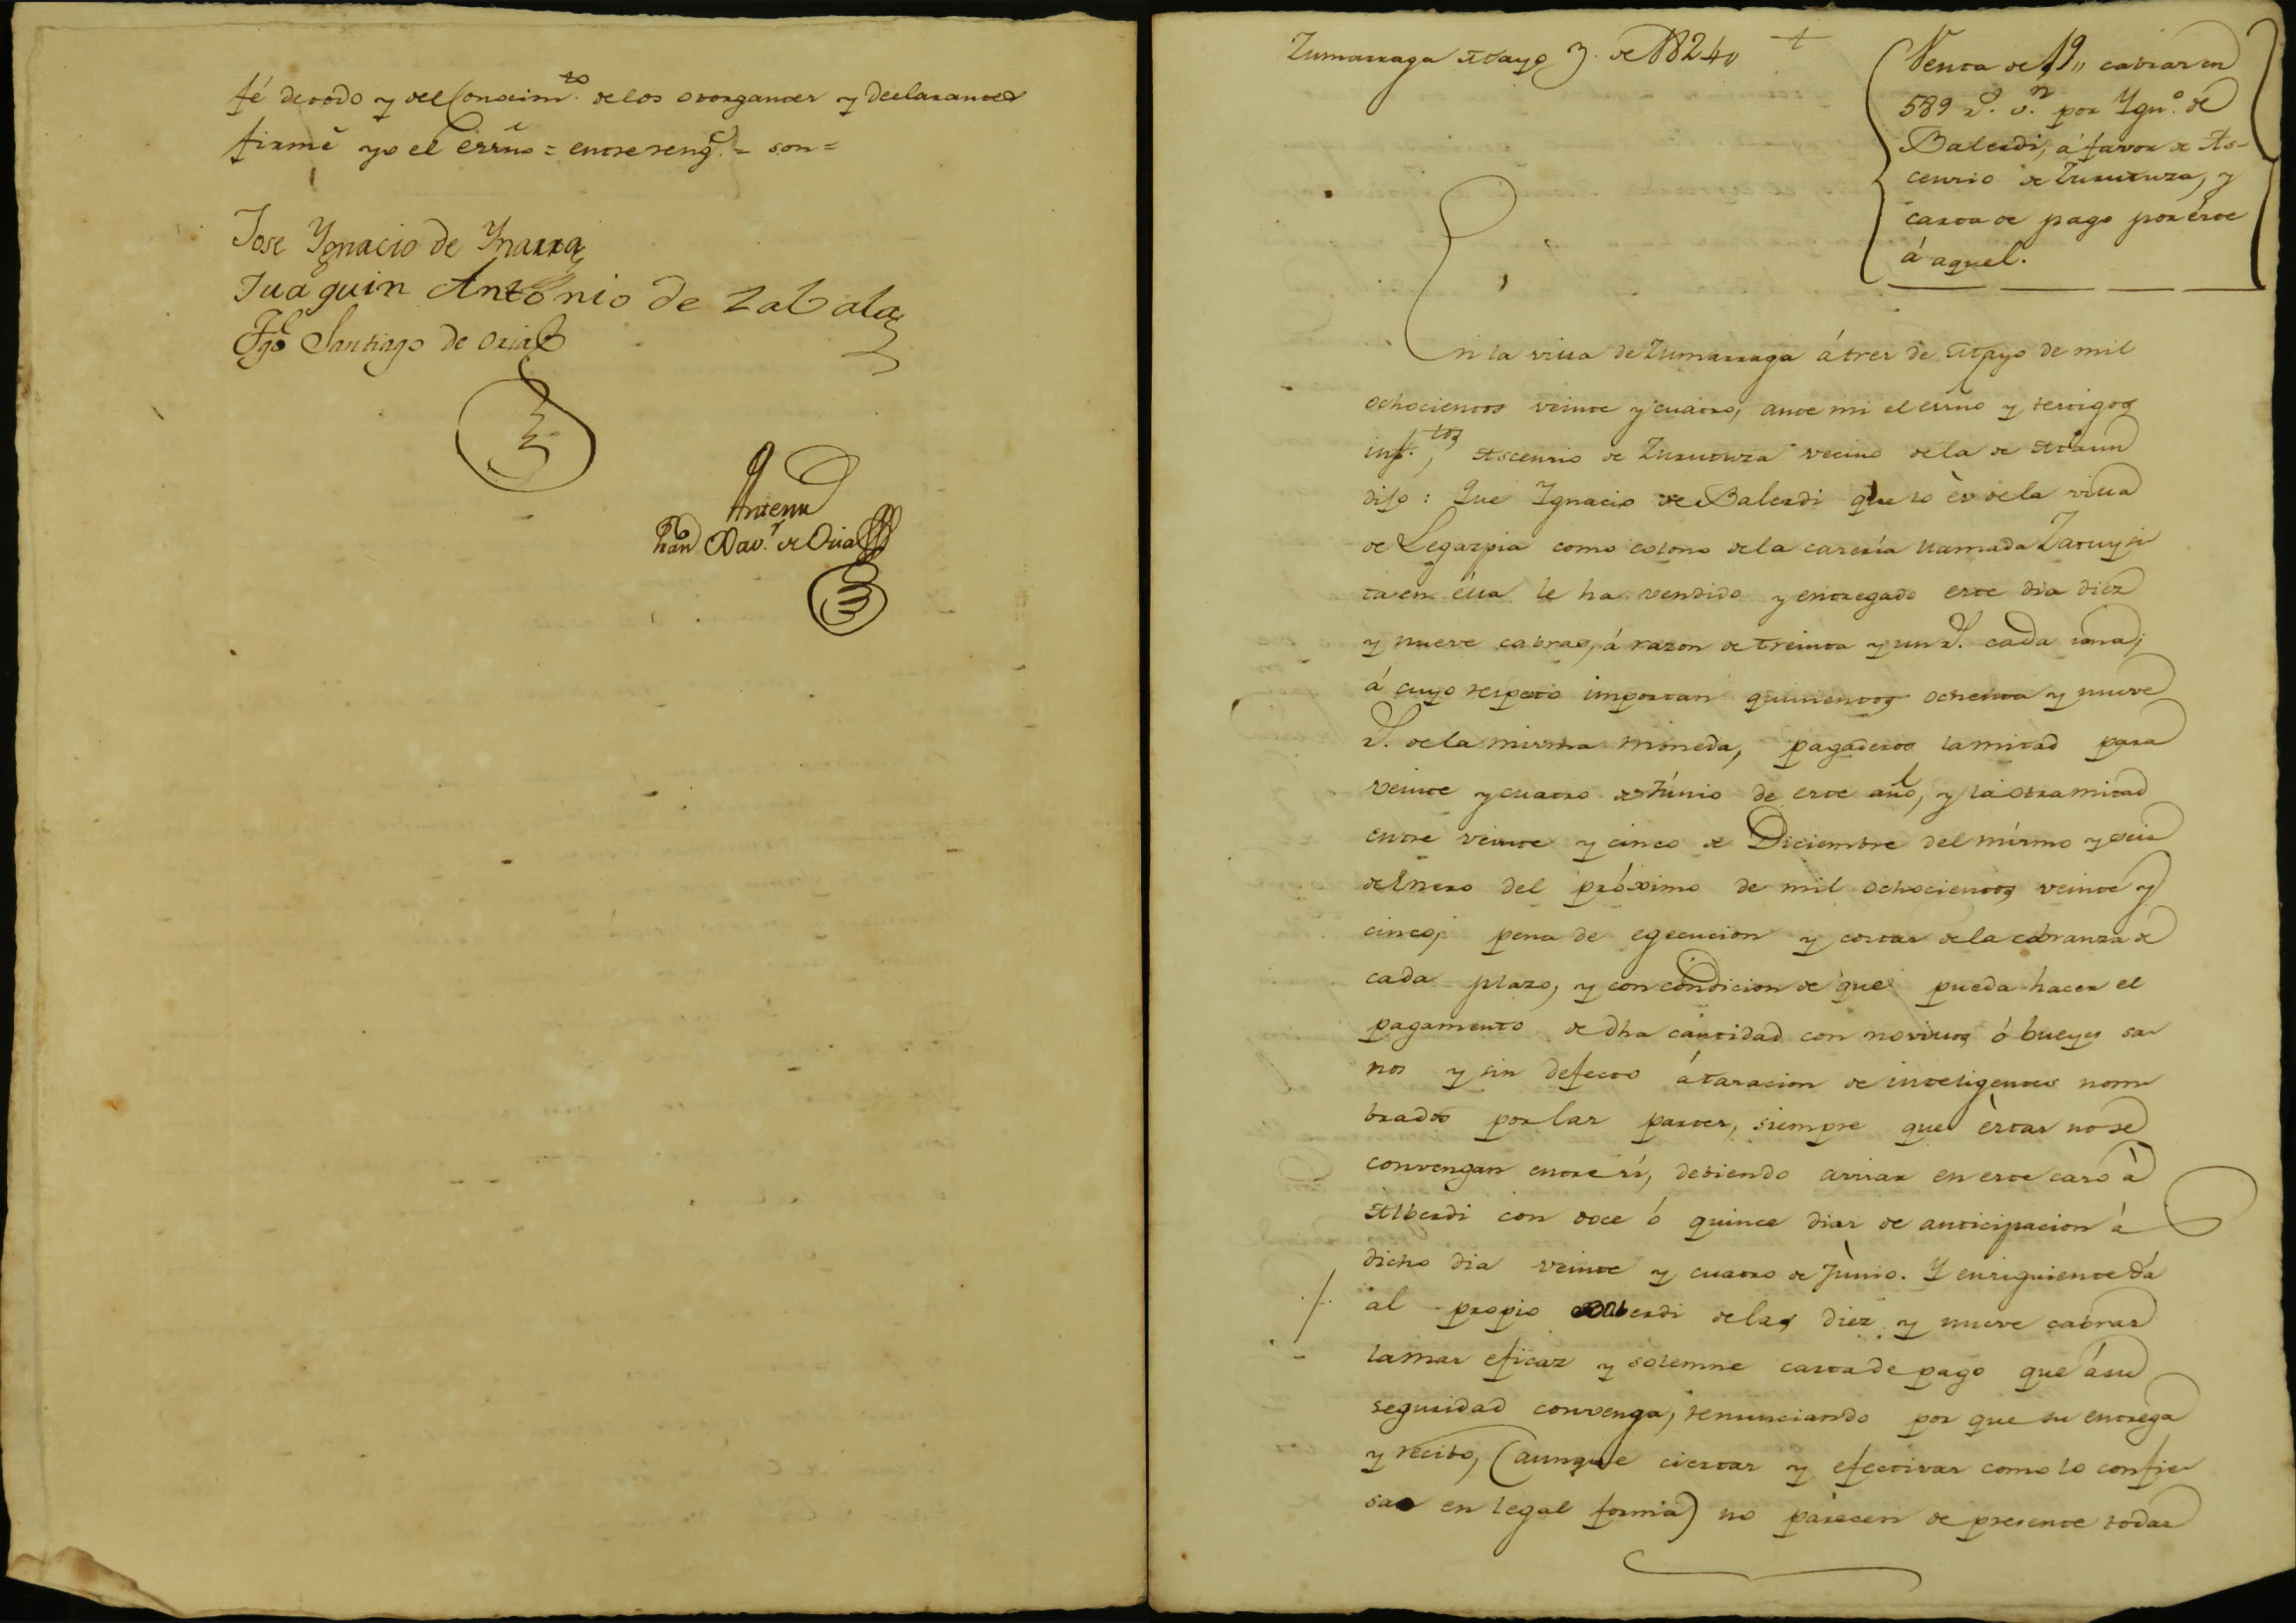 fé de todo y del conocim.to de los otorgantes y declarantes
firmé yo el essno = entrereng.s = son =
Jose Ygnacio de Ynarra
Juaquin Antonio de Zabala
Tgo Santiago de Oria
Ante mi
Fran.co Xav.r de Oria
Zumarraga Mayo 3. de 1824
Venta de 19,, cabras en
589 r.s v.n por Ygn.o de
Balerdi, á favor de As-
censio de Zurutuza, y
carta de pago por éste
á aquel.
En la villa de Zumarraga á tres de Mayo de mil
ochocientos veinte y cuatro, ante mi el essno y testigos
inf.tos, Ascensio de Zurutuza vecino de la de Ataun
dijo: Que Ygnacio de Balerdi que lo és de la villa
de Legazpia como colono de la casería llamada Zatuy si
ta en élla le ha vendido y entregado este dia diez
y nueve cabras, á razon de treinta y un r.s cada una;
á cuyo respeto importan quinientos ochenta y nueve
r.s de la misma moneda, pagaderos la mitad para
veinte y cuatro de Júnio de este año, y la otra mitad
entre veinte y cinco de Diciembre del mismo y seis
de Enero del próximo de mil ochocientos veinte y
cinco, pena de egecucion y costas de la cobranza de
cada plazo, y con condicion de que pueda hacer el
pagamento de dha cantidad con novillos ó bueyes sa
nos y sin defecto á tasacion de inteligentes nom
brados por las partes, siempre que éstas no se
convengan entre sí, debiendo avisar en este caso á
Alberdi con doce ó quince dias de anticipacion á
dicho dia veinte y cuatro de Júnio. Y ensiguiente dá
al propio Balerdi de las diez y nueve cabras
la mas eficaz y solemne carta de pago que á su
seguridad convenga, renunciando por que su entrega
y recibo, (aunque ciertas y efectivas como lo confie
sa en legal forma) no parecen de presente todas